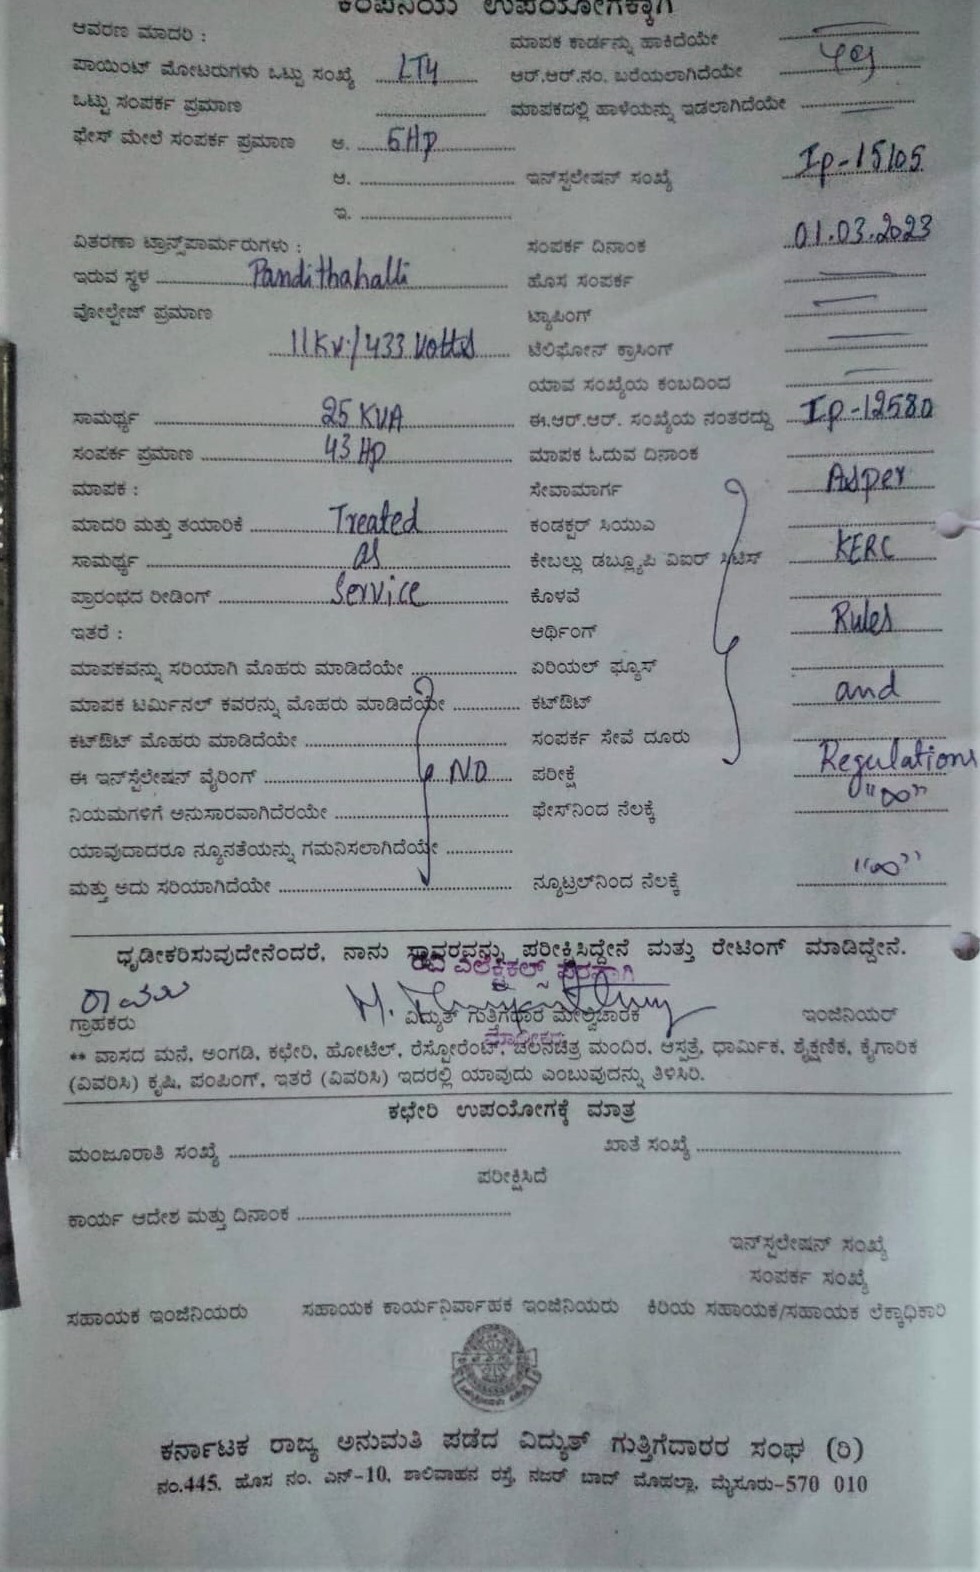 ಕಂಪನಿಯ ಉಪಯೋಗಕ್ಕಾಗಿ
ಆವರಣ ಮಾದರಿ : ಮಾಪಕ ಕಾರ್ಡನ್ನು ಹಾಕಿದೆಯೇ
ಪಾಯಿಂಟ್ ಮೋಟರುಗಳು ಒಟ್ಟು ಸಂಖ್ಯೆ LT4 ಆರ್.ಆರ್.ನಂ. ಬರೆಯಲಾಗಿದೆಯೇ yes
ಒಟ್ಟು ಸಂಪರ್ಕ ಪ್ರಮಾಣ ಮಾಪಕದಲ್ಲಿ ಹಾಳೆಯನ್ನು ಇಡಲಾಗಿದೆಯೇ
ಫೇಸ್ ಮೇಲೆ ಸಂಪರ್ಕ ಪ್ರಮಾಣ ಅ. 5HP
ಆ. ಇನ್‌ಸ್ಟಲೇಷನ್ ಸಂಖ್ಯೆ Ip-15105
ಇ.
ವಿತರಣಾ ಟ್ರಾನ್ಸ್‌ಪಾರ್ಮರುಗಳು : ಸಂಪರ್ಕ ದಿನಾಂಕ 01.03.2023
ಇರುವ ಸ್ಥಳ Pandithahalli ಹೊಸ ಸಂಪರ್ಕ
ವೋಲ್ಟೇಜ್ ಪ್ರಮಾಣ ಟ್ಯಾಪಿಂಗ್
11KV/433 Volts ಟೆಲಿಫೋನ್ ಕ್ರಾಸಿಂಗ್
ಯಾವ ಸಂಖ್ಯೆಯ ಕಂಬದಿಂದ
ಸಾಮರ್ಥ್ಯ 25 KVA ಈ.ಆರ್.ಆರ್. ಸಂಖ್ಯೆಯ ನಂತರದ್ದು Ip-12580
ಸಂಪರ್ಕ ಪ್ರಮಾಣ 43 Hp ಮಾಪಕ ಓದುವ ದಿನಾಂಕ
ಮಾಪಕ : ಸೇವಾಮಾರ್ಗ Asper
ಮಾದರಿ ಮತ್ತು ತಯಾರಿಕೆ Treated ಕಂಡಕ್ಟರ್ ಸಿಯುಎ
ಸಾಮರ್ಥ್ಯ as ಕೇಬಲ್ಲು ಡಬ್ಲ್ಯೂಪಿ ವಿಐಆರ್ ಸಿಟಿಸ್ KERC
ಪ್ರಾರಂಭದ ರೀಡಿಂಗ್ Service ಕೊಳವೆ
ಇತರೆ : ಆರ್ಥಿಂಗ್ Rules
ಮಾಪಕವನ್ನು ಸರಿಯಾಗಿ ಮೊಹರು ಮಾಡಿದೆಯೇ ಏರಿಯಲ್ ಫ್ಯೂಸ್
ಮಾಪಕ ಟರ್ಮಿನಲ್ ಕವರನ್ನು ಮೊಹರು ಮಾಡಿದೆಯೇ ಕಟ್‌ಔಟ್ and
ಕಟ್‌ಔಟ್ ಮೊಹರು ಮಾಡಿದೆಯೇ ಸಂಪರ್ಕ ಸೇವೆ ದೂರು
ಈ ಇನ್‌ಸ್ಟೆಲೇಷನ್ ವೈರಿಂಗ್ NO ಪರೀಕ್ಷೆ Regulations
ನಿಯಮಗಳಿಗೆ ಅನುಸಾರವಾಗಿದೆರಯೇ ಫೇಸ್‌ನಿಂದ ನೆಲಕ್ಕೆ "∞"
ಯಾವುದಾದರೂ ನ್ಯೂನತೆಯನ್ನು ಗಮನಿಸಲಾಗಿದೆಯೇ
ಮತ್ತು ಅದು ಸರಿಯಾಗಿದೆಯೇ ನ್ಯೂಟ್ರಲ್‌ನಿಂದ ನೆಲಕ್ಕೆ "∞"
ಧೃಡೀಕರಿಸುವುದೇನೆಂದರೆ, ನಾನು ಸ್ಥಾವರವನ್ನು ಪರೀಕ್ಷಿಸಿದ್ದೇನೆ ಮತ್ತು ರೇಟಿಂಗ್ ಮಾಡಿದ್ದೇನೆ.
ಎಲೆಕ್ಟ್ರಿಕಲ್ಸ್ ಪರವಾಗಿ
ಗ್ರಾಹಕರು ವಿದ್ಯುತ್ ಗುತ್ತಿಗೆದಾರ ಮೇಲ್ವಿಚಾರಕ ಇಂಜಿನಿಯರ್
** ವಾಸದ ಮನೆ, ಅಂಗಡಿ, ಕಛೇರಿ, ಹೋಟೆಲ್, ರೆಸ್ಟೋರೆಂಟ್, ಚಲನಚಿತ್ರ ಮಂದಿರ, ಆಸ್ಪತ್ರೆ, ಧಾರ್ಮಿಕ, ಶೈಕ್ಷಣಿಕ, ಕೈಗಾರಿಕ
(ವಿವರಿಸಿ) ಕೃಷಿ, ಪಂಪಿಂಗ್, ಇತರೆ (ವಿವರಿಸಿ) ಇದರಲ್ಲಿ ಯಾವುದು ಎಂಬುವುದನ್ನು ತಿಳಿಸಿರಿ.
ಕಛೇರಿ ಉಪಯೋಗಕ್ಕೆ ಮಾತ್ರ
ಮಂಜೂರಾತಿ ಸಂಖ್ಯೆ ಖಾತೆ ಸಂಖ್ಯೆ
ಪರೀಕ್ಷಿಸಿದೆ
ಕಾರ್ಯ ಆದೇಶ ಮತ್ತು ದಿನಾಂಕ
ಇನ್‌ಸ್ಟಲೇಷನ್ ಸಂಖ್ಯೆ
ಸಂಪರ್ಕ ಸಂಖ್ಯೆ
ಸಹಾಯಕ ಇಂಜಿನಿಯರು ಸಹಾಯಕ ಕಾರ್ಯನಿರ್ವಾಹಕ ಇಂಜಿನಿಯರು ಕಿರಿಯ ಸಹಾಯಕ/ಸಹಾಯಕ ಲೆಕ್ಕಾಧಿಕಾರಿ
ಕರ್ನಾಟಕ ರಾಜ್ಯ ಅನುಮತಿ ಪಡೆದ ವಿದ್ಯುತ್ ಗುತ್ತಿಗೆದಾರರ ಸಂಘ (ರಿ)
ನಂ.445, ಹೊಸ ನಂ. ಎನ್-10, ಶಾಲಿವಾಹನ ರಸ್ತೆ, ನಜರ್ ಬಾದ್ ಮೊಹಲ್ಲಾ, ಮೈಸೂರು-570 010